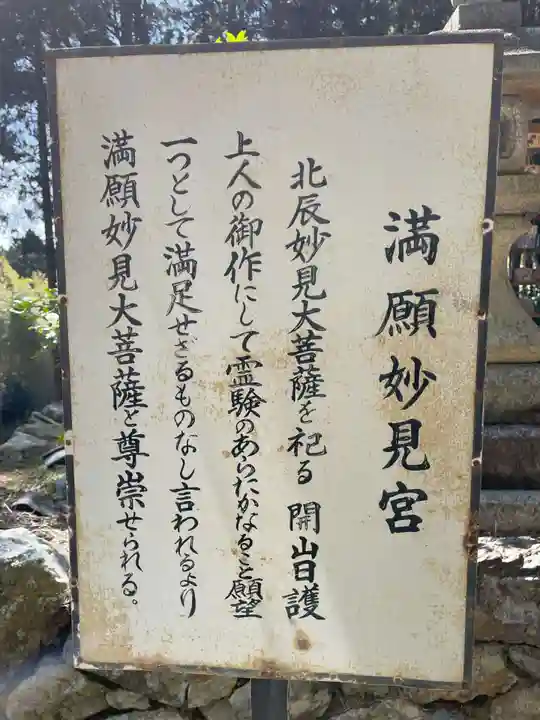 満願妙見宮
北辰妙見大菩薩を祀る 開山日護
上人の御作にして霊験のあらたかなること願望
一つとして満足せざるものなし言われるより
満願妙見大菩薩と尊崇せられる。